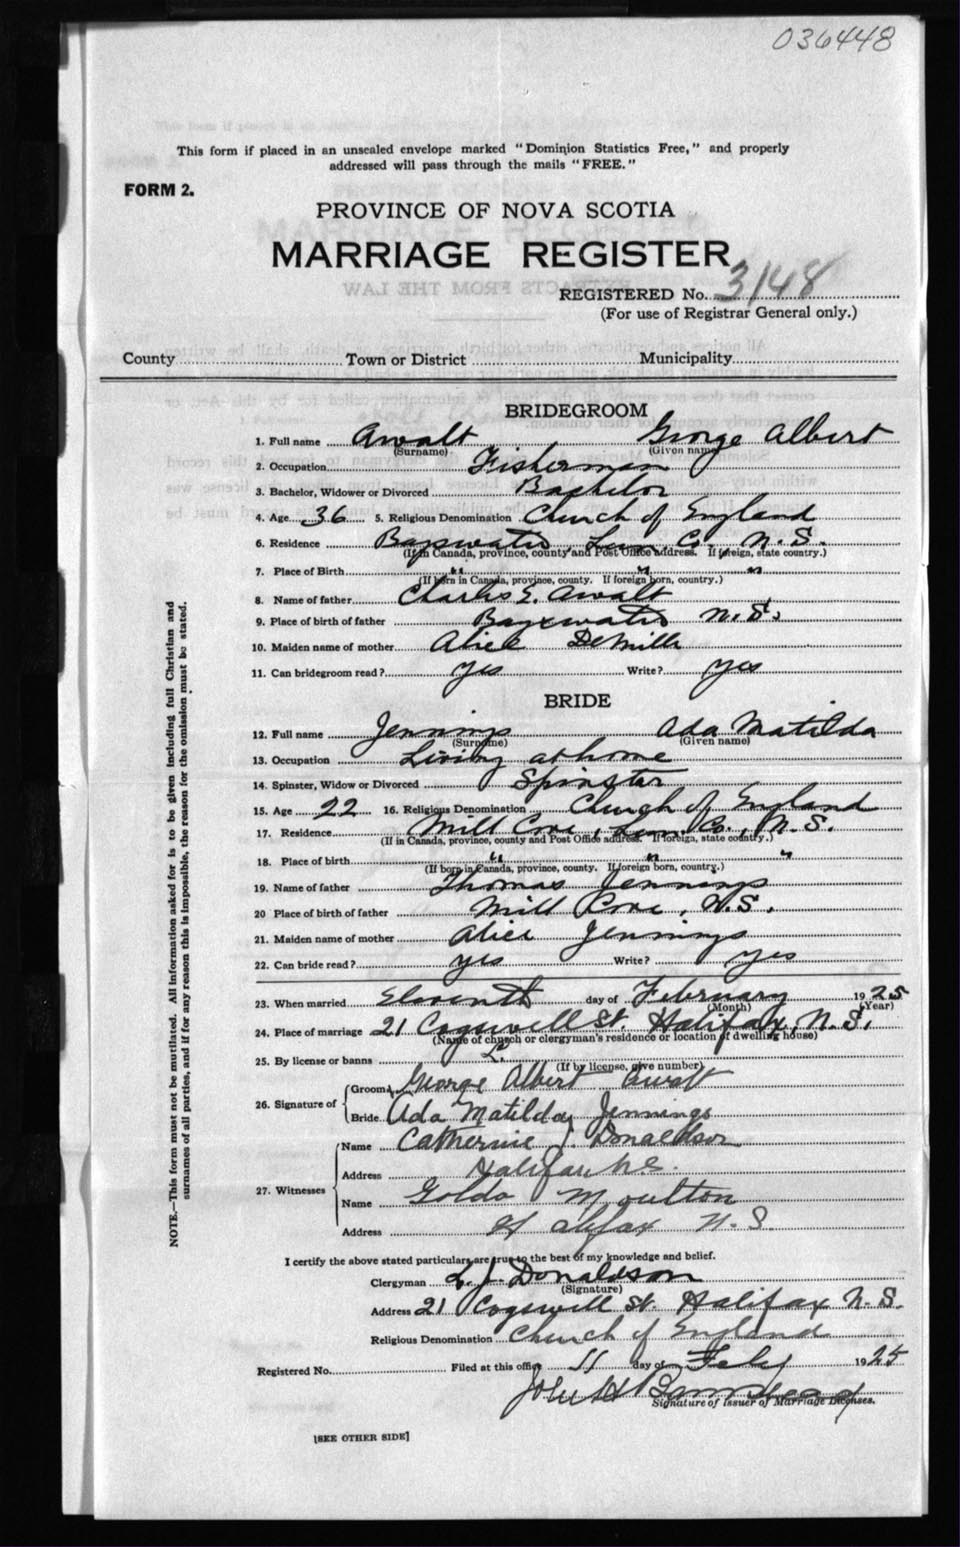 036448
This form if placed in an unsealed envelope marked "Dominion Statistics Free," and properly
addressed will pass through the mails "FREE."
FORM 2.
PROVINCE OF NOVA SCOTIA
MARRIAGE REGISTER
REGISTERED No. 3148
(For use of Registrar General only.)
County Town or District Municipality
BRIDEGROOM
1. Full name Awalt George Albert
(Surname) (Given name)
2. Occupation Fisherman
3. Bachelor, Widower or Divorced Bachelor
4. Age 36 5. Religious Denomination Church of England
6. Residence Bayswater Lun. Co. N.S.
(If in Canada, province, county and Post Office address. If foreign, state country.)
7. Place of Birth " " "
(If born in Canada, province, county. If foreign born, country.)
8. Name of father Charles E. Awalt
9. Place of birth of father Bayswater N.S.
10. Maiden name of mother Alice DeMille
11. Can bridegroom read? yes Write? yes
BRIDE
12. Full name Jennings Ada Matilda
(Surname) (Given name)
13. Occupation Living at home
14. Spinster, Widow or Divorced Spinster
15. Age 22 16. Religious Denomination Church of England
17. Residence Mill Cove, Lun. Co., N.S.
(If in Canada, province, county and Post Office address. If foreign, state country.)
18. Place of birth " " "
(If born in Canada, province, county. If foreign born, country.)
19. Name of father Thomas Jennings
20 Place of birth of father Mill Cove, N.S.
21. Maiden name of mother Alice Jennings
22. Can bride read? yes Write? yes
23. When married Eleventh day of February 1925
(Month) (Year)
24. Place of marriage 21 Cogswell St. Halifax, N.S.
(Name of church or clergyman's residence or location of dwelling house)
25. By license or banns L.
(If by license, give number)
26. Signature of Groom George Albert Awalt
Bride Ada Matilda Jennings
27. Witnesses Name Catherine J Donaldson
Address Halifax N.S.
Name Golda Moulton
Address Halifax N.S.
I certify the above stated particulars are true to the best of my knowledge and belief.
Clergyman L. J. Donaldson
(Signature)
Address 21 Cogswell St. Halifax N.S.
Religious Denomination Church of England
Registered No. Filed at this office 11 day of Feby 1925
John H
Signature of Issuer of Marriage Licenses.
[SEE OTHER SIDE]
NOTE.—This form must not be mutilated. All information asked for is to be given including full Christian and
surnames of all parties, and if for any reason this is impossible, the reason for the omission must be stated.